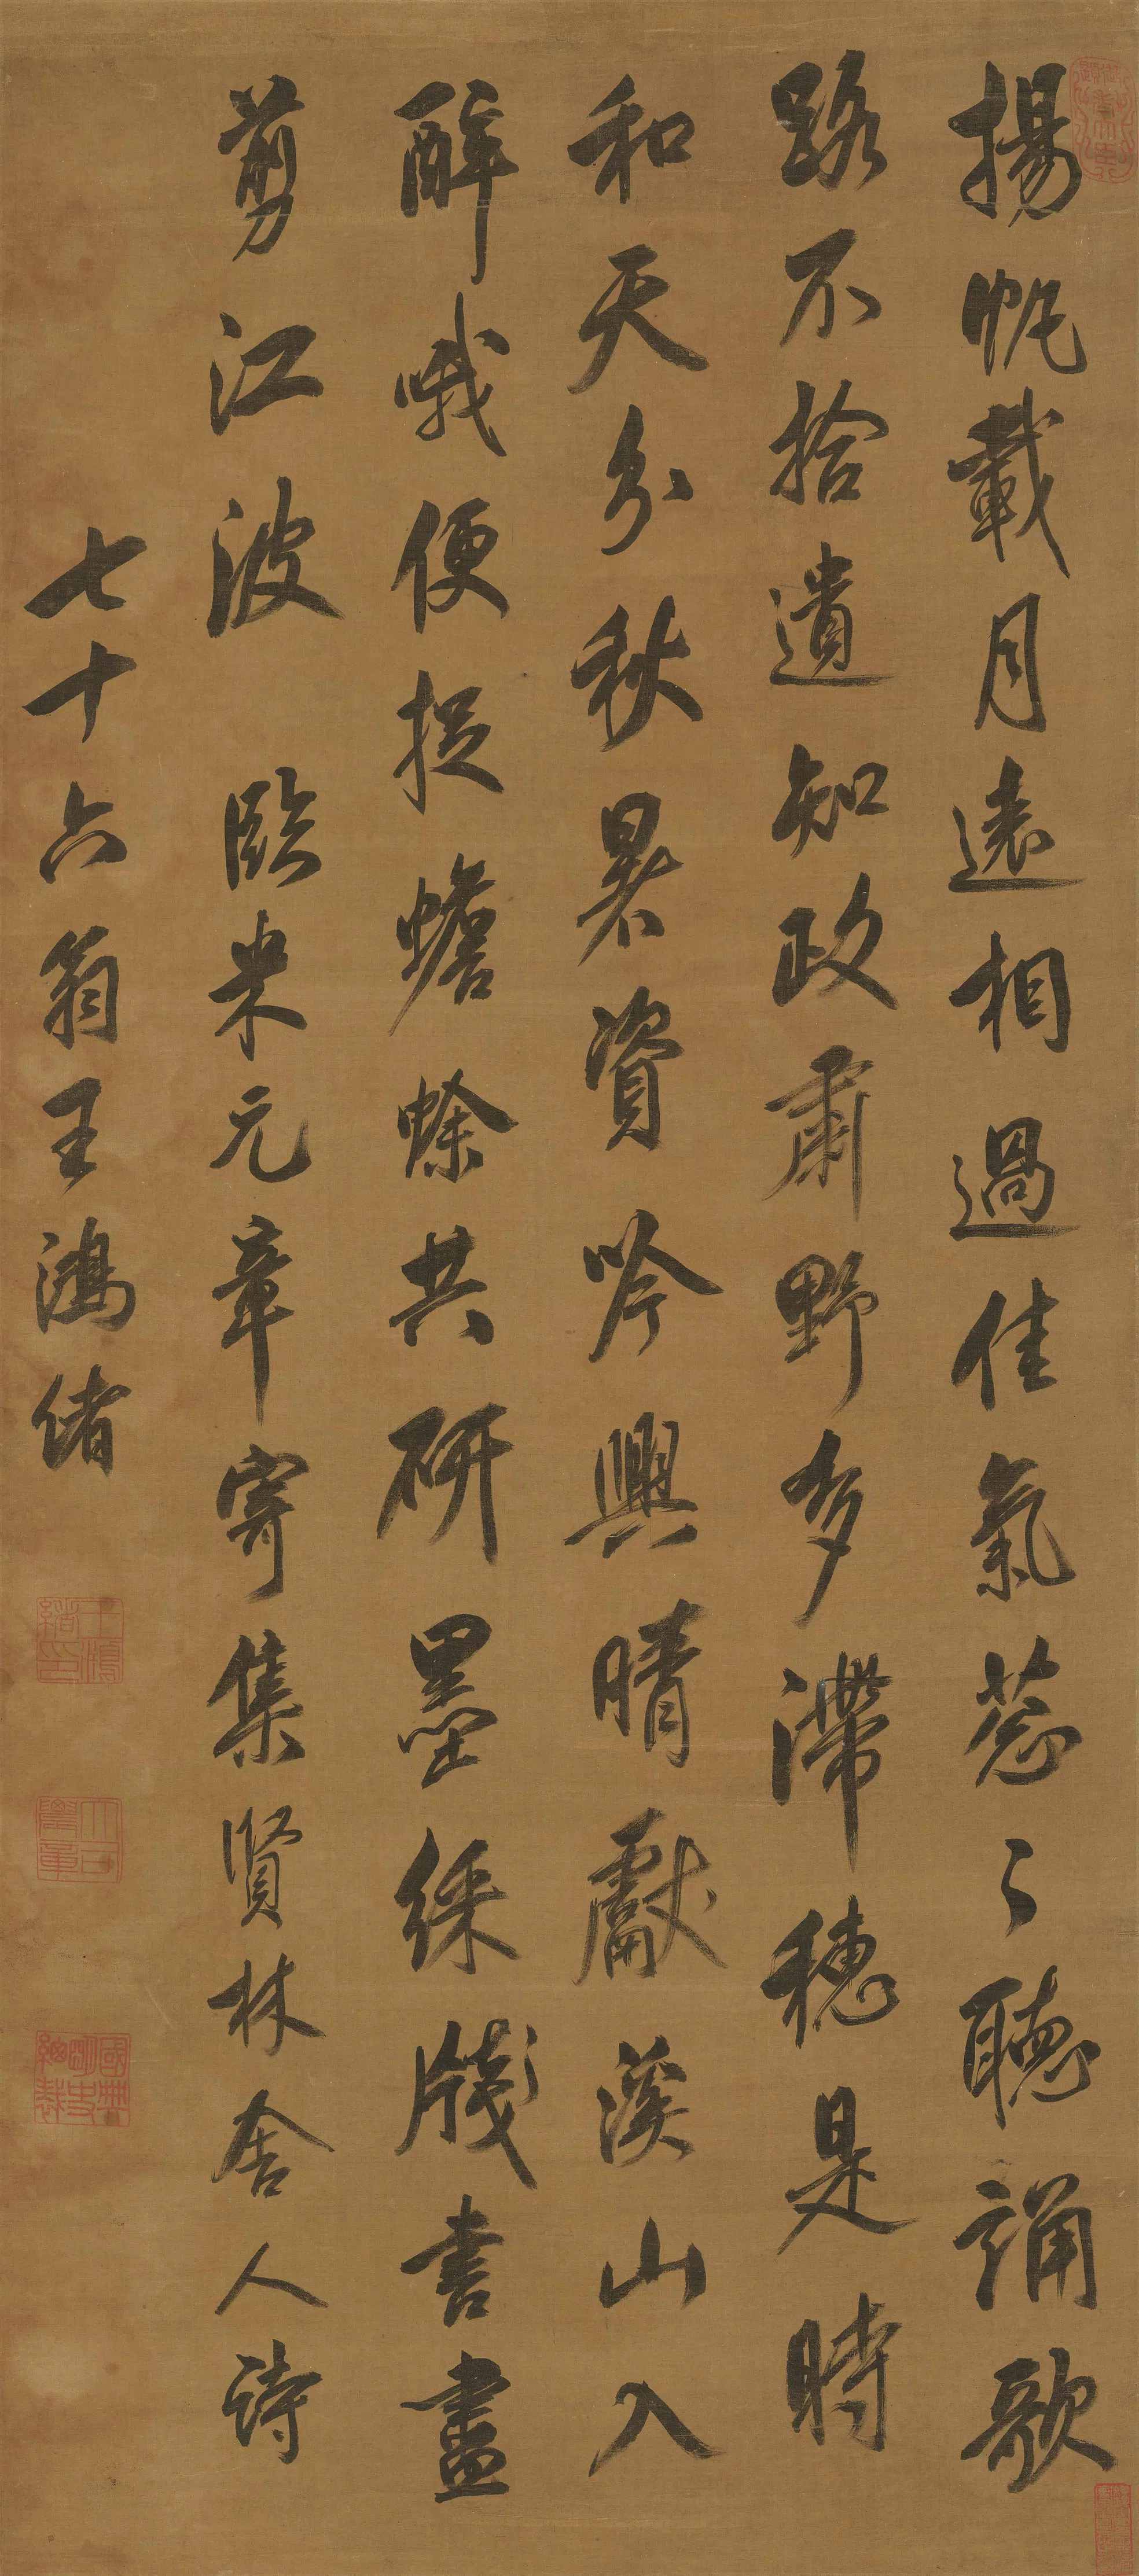 揚帆載月遠相過佳氣葱〻聽誦歌
路不拾遺知政肅野多滯穗是時
和天分秋暑資吟興晴獻溪山入
醉哦便捉蟾蜍共研墨綵牋書盡
剪江波　臨米元章寄集賢林舍人詩
七十六翁王鴻緒
王鴻緒印